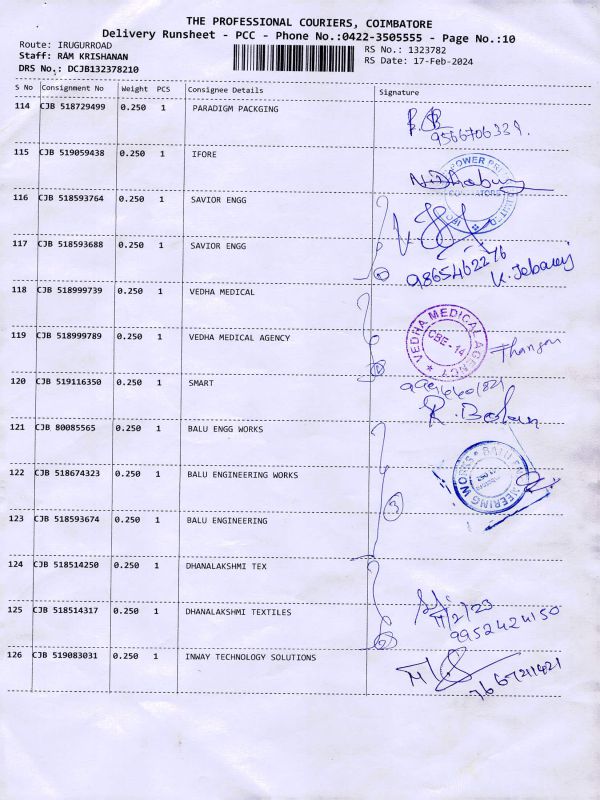 THE PROFESSIONAL COURIERS, COIMBATORE
Delivery Runsheet - PCC - Phone No.:0422-3505555 - Page No.:10
Route: IRUGURROAD
Staff: RAM KRISHANAN
DRS No.: DCJB132378210
RS No.: 1323782
RS Date: 17-Feb-2024
S No Consignment No Weight PCS Consignee Details Signature
114 CJB 518729499 0.250 1 PARADIGM PACKGING
9566706331.
115 CJB 519059438 0.250 1 IFORE
116 CJB 518593764 0.250 1 SAVIOR ENGG
117 CJB 518593688 0.250 1 SAVIOR ENGG
9865462276
K. Jebaraj
118 CJB 518999739 0.250 1 VEDHA MEDICAL
119 CJB 518999789 0.250 1 VEDHA MEDICAL AGENCY
VEDHA MEDICAL AGENCY
CBE - 14
120 CJB 519116350 0.250 1 SMART
121 CJB 80085565 0.250 1 BALU ENGG WORKS
122 CJB 518674323 0.250 1 BALU ENGINEERING WORKS
BALU ENGINEERING WORKS
123 CJB 518593674 0.250 1 BALU ENGINEERING
3
124 CJB 518514250 0.250 1 DHANALAKSHMI TEX
125 CJB 518514317 0.250 1 DHANALAKSHMI TEXTILES
17/2/23
9952424150
126 CJB 519083031 0.250 1 INWAY TECHNOLOGY SOLUTIONS